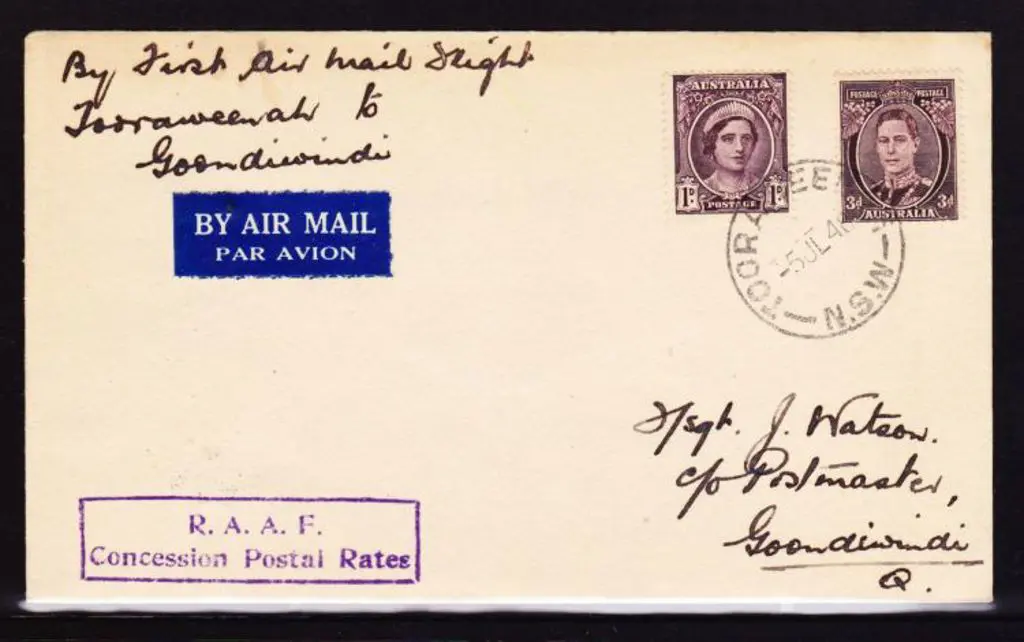 By First Air Mail Flight
Tooraweenah to
Goondiwindi
BY AIR MAIL
PAR AVION
AUSTRALIA
1D 1D
POSTAGE
POSTAGE POSTAGE
3d 3d
AUSTRALIA
TOORAWEE
-5JL4
N.S.W
F/sgt. J. Watson.
c/o Postmaster,
Goondiwindi
Q.
R. A. A. F.
Concession Postal Rates